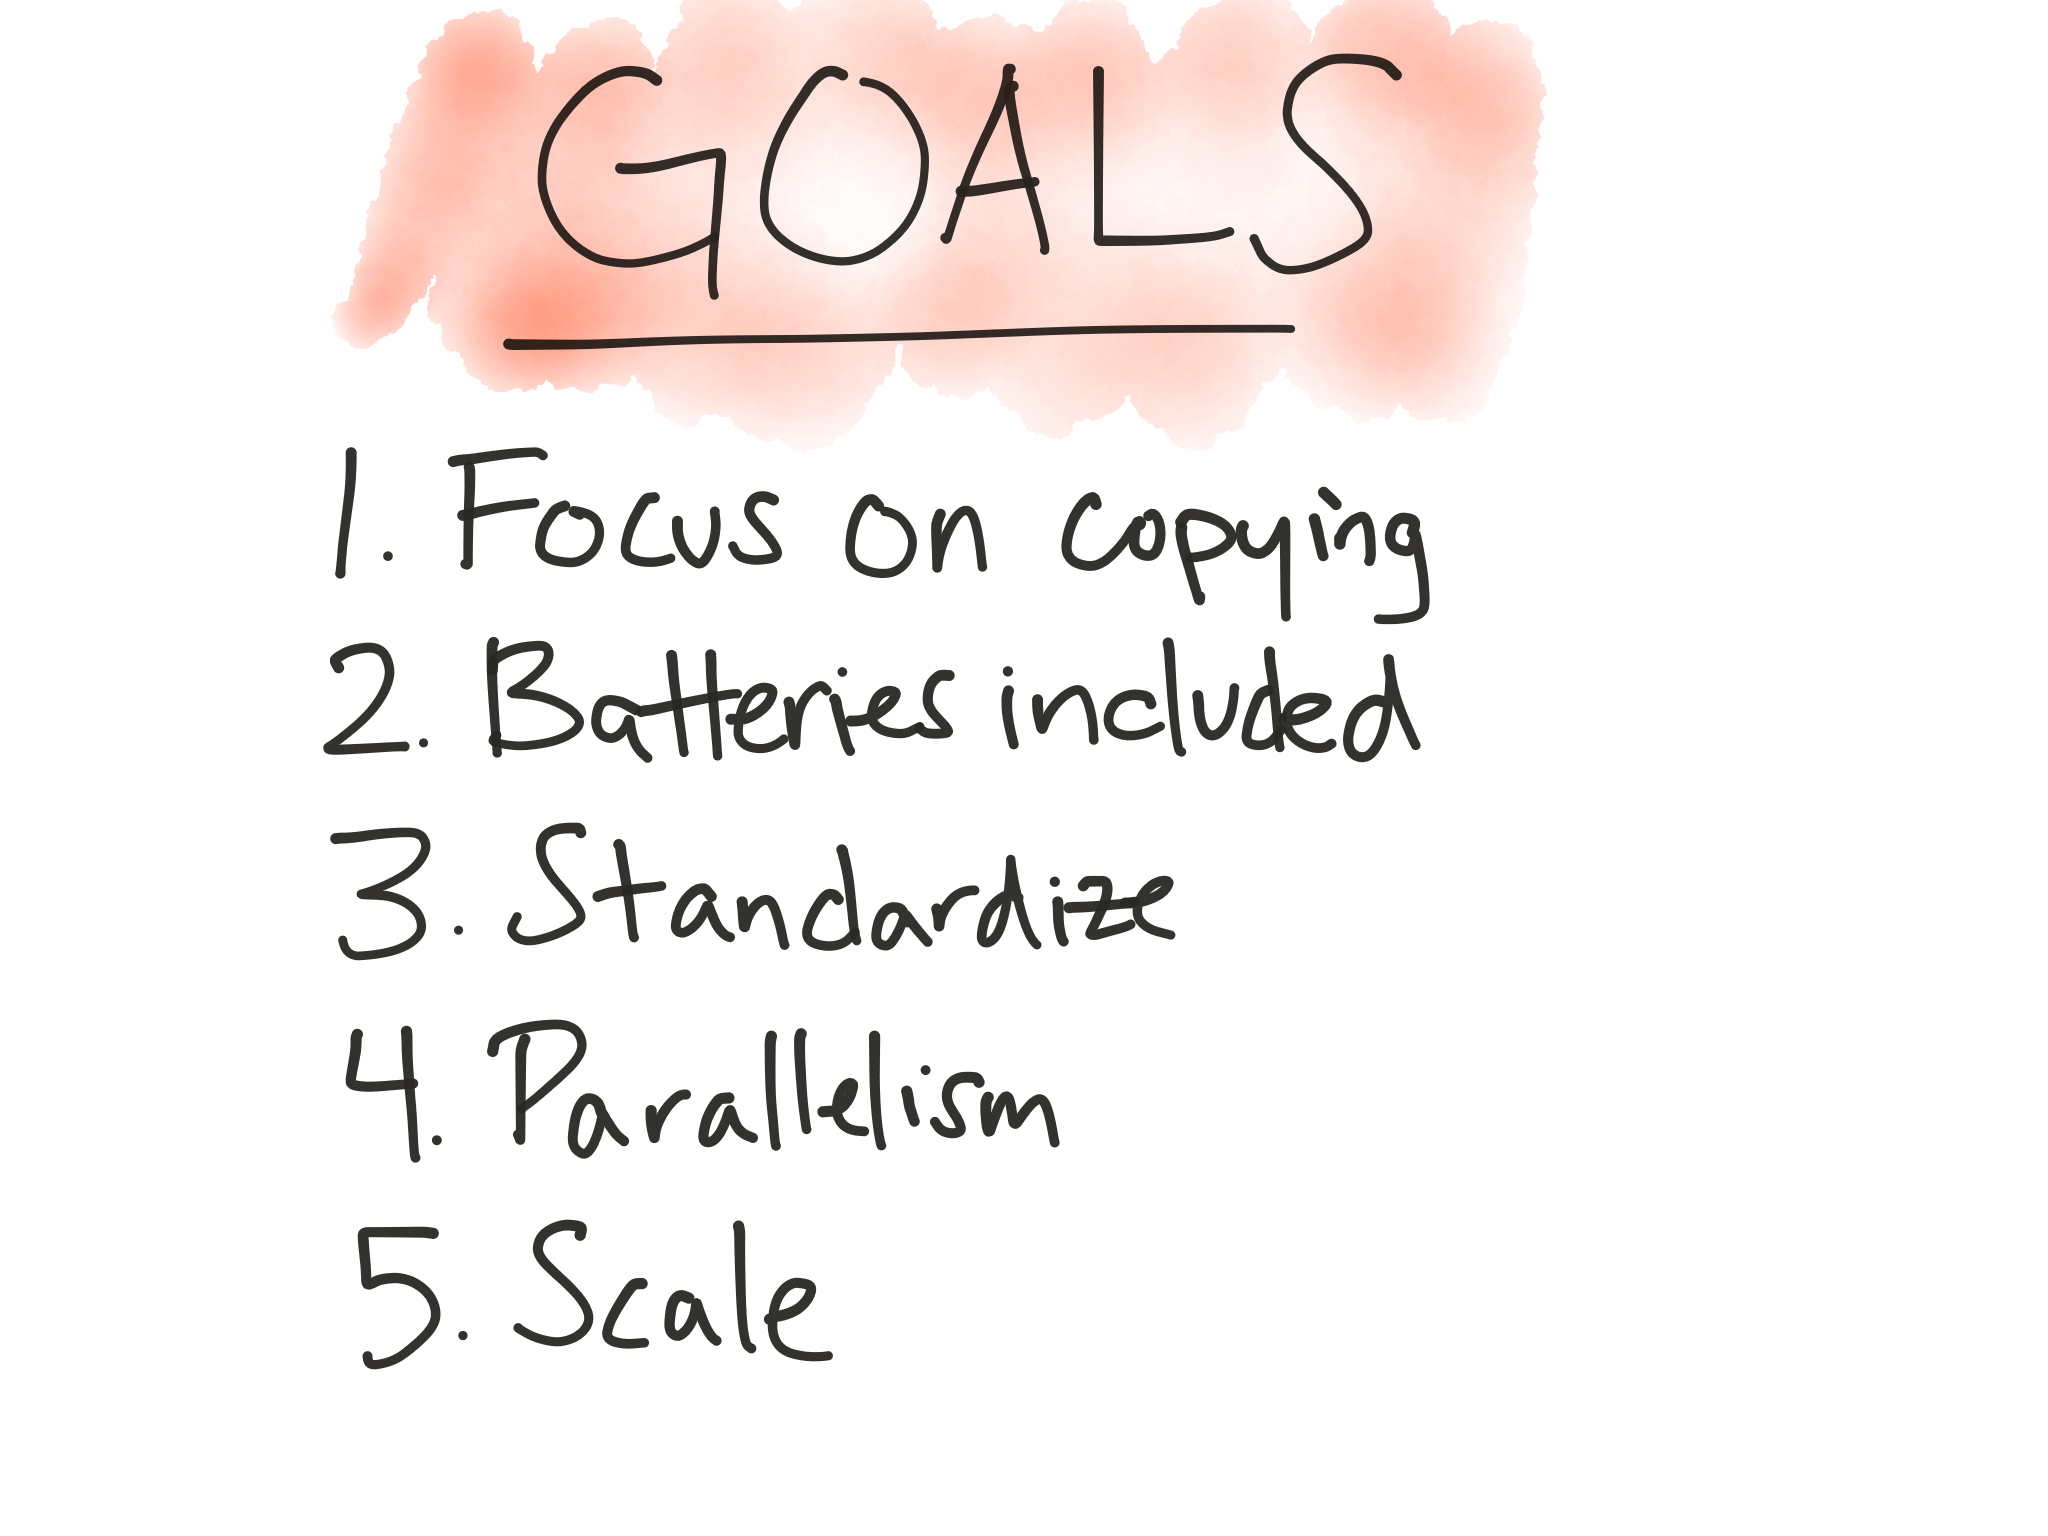 GOALS
1. Focus on copying
2. Batteries included
3. Standardize
4. Parallelism
5. Scale